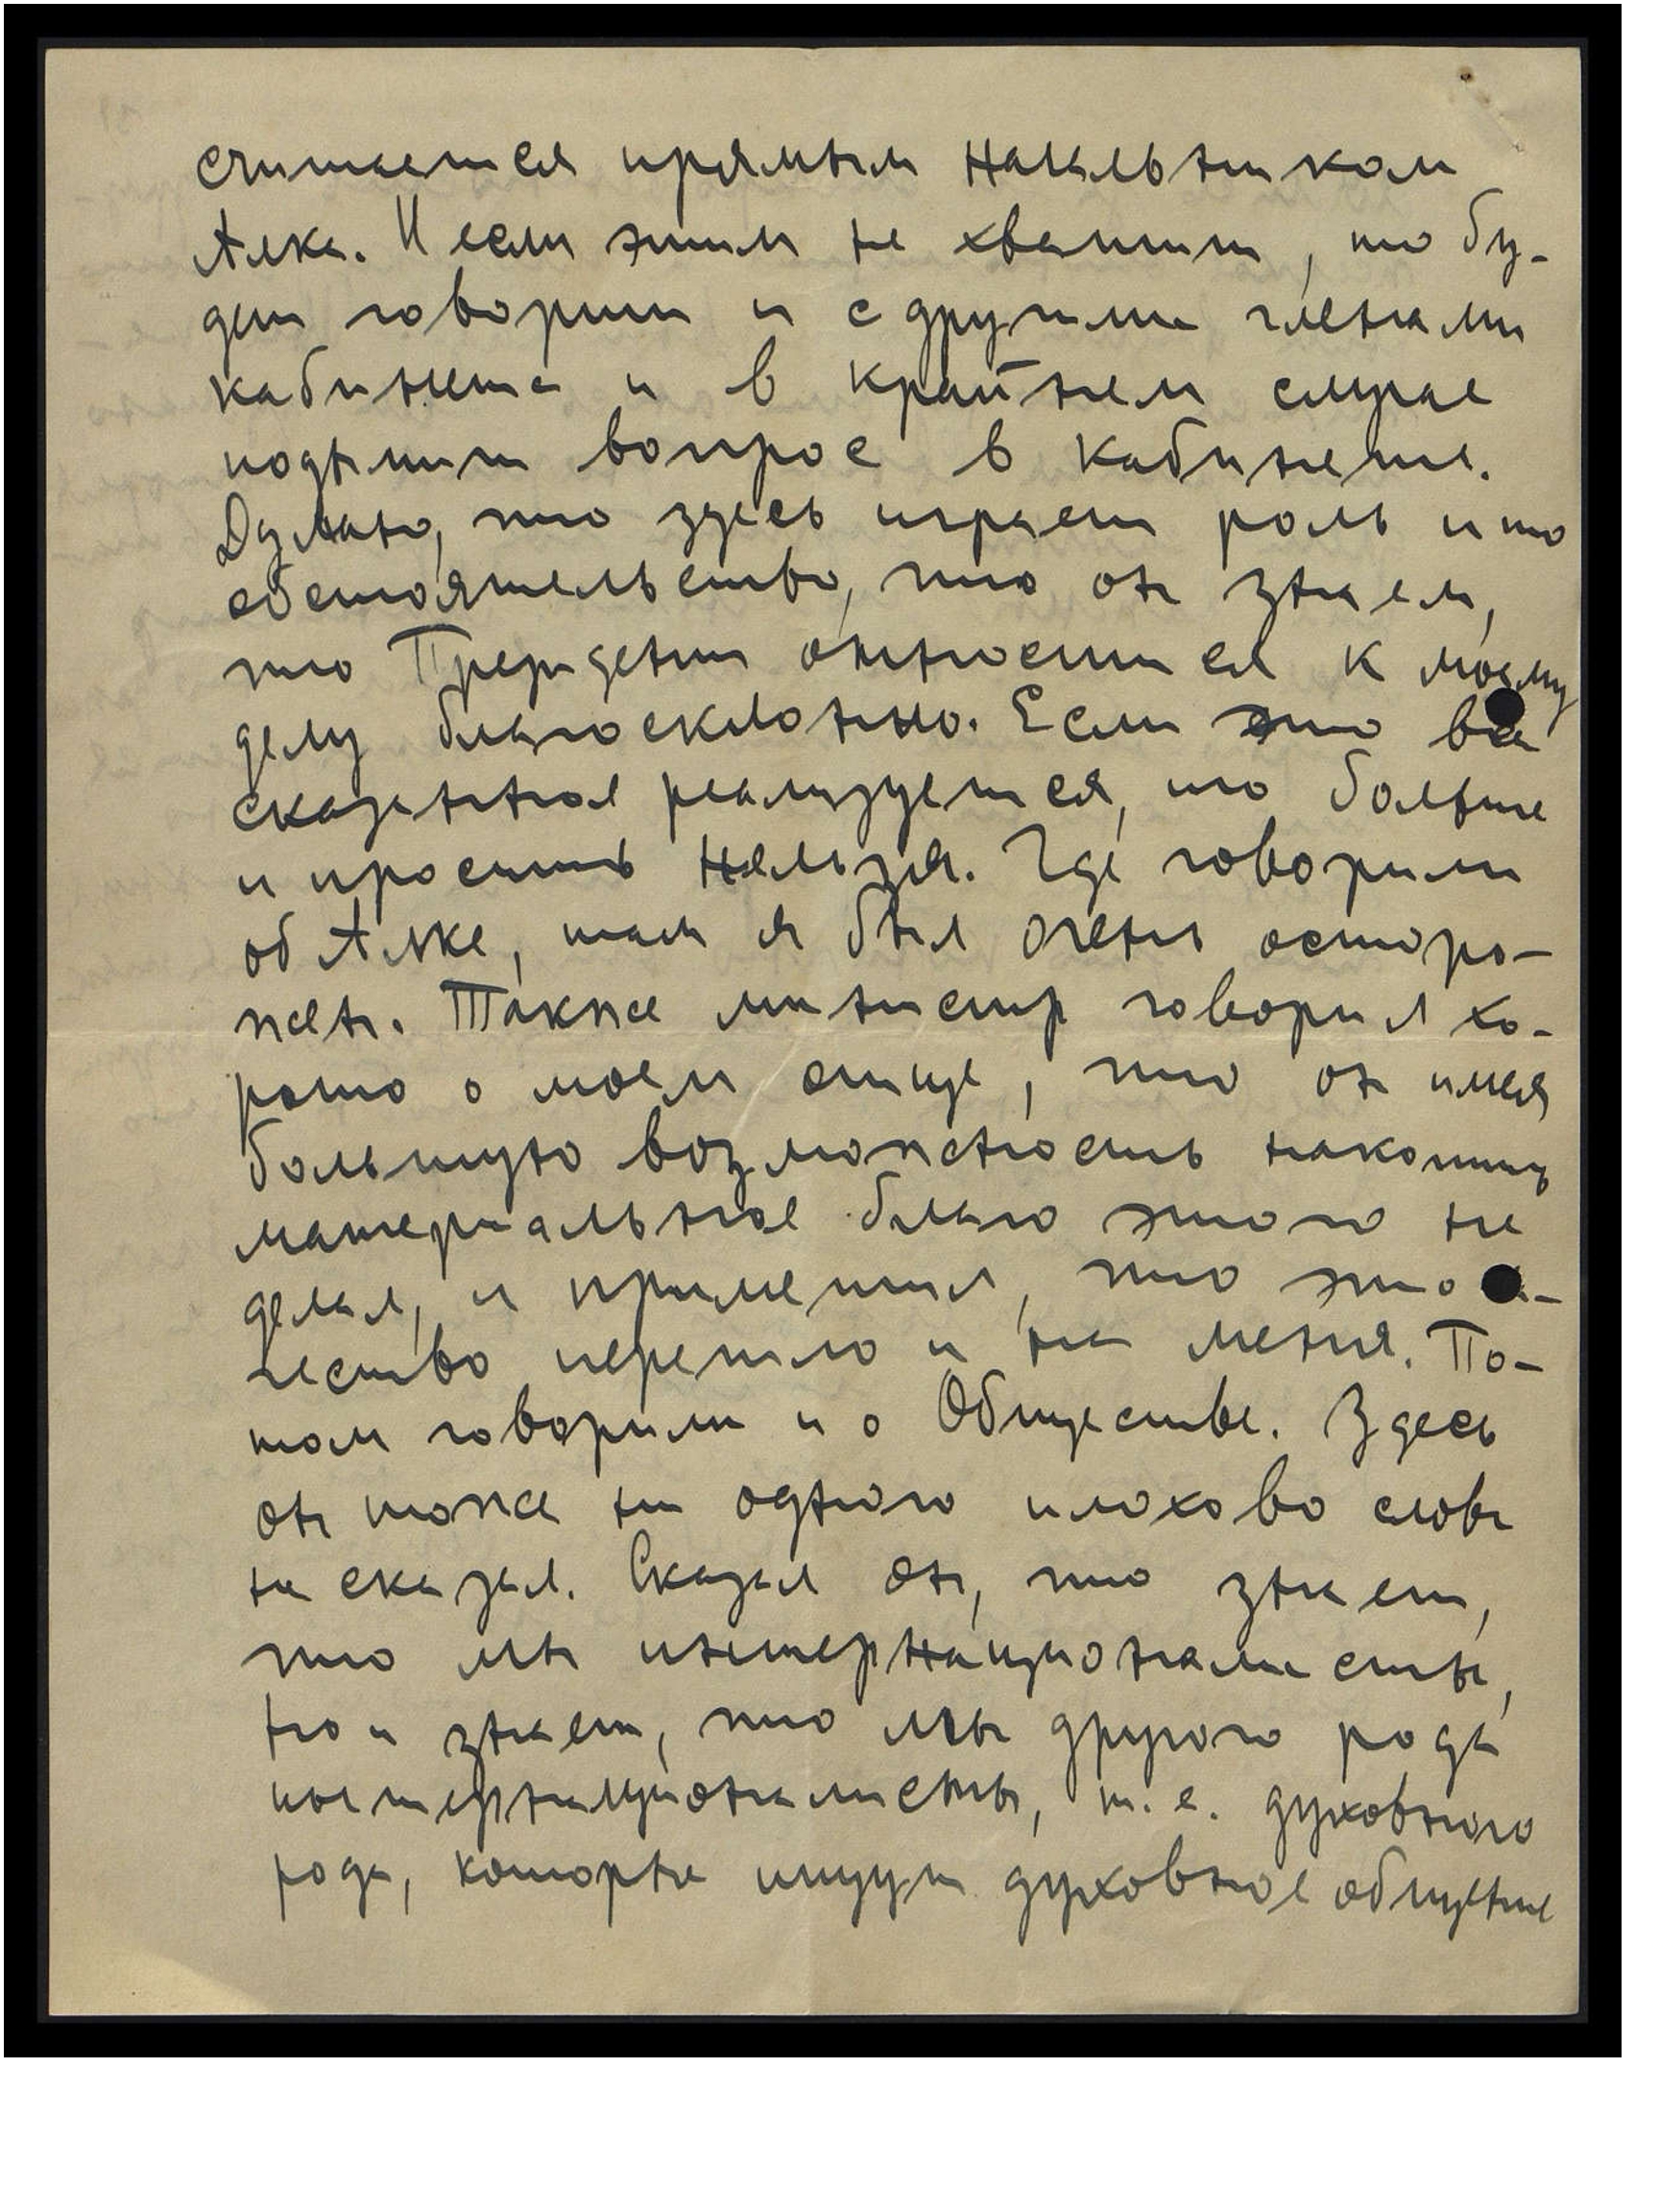 считается прямым начальником
Алка. И если этим не хватит, то бу-
дет говорить и с другими членами
кабинета и в крайнем случае
подымит вопрос в кабинете.
Думаю, что здесь играет роль и то
обстоятельство, что он знает,
что Президент относится к моему
делу благосклонно. Если это все
сказанное реализуется, то больше
и просить нельзя. Где говорили
об Алке, там я был очень осторо-
жен. Также министр говорил хо-
рошо о моем отце, что он имея
большую возможность накопить
материальное благо этого не
делал, и приметил, что это
чество перешло и на меня. По-
том говорили и о Обществе. Здесь
он тоже ни одного плохово слова
не сказал. Сказал он, что знает,
что мы интернационалисты,
но и знает, что мы другого рода
интернационалисты, т.е. духовного
рода, которые ищут духовное общение